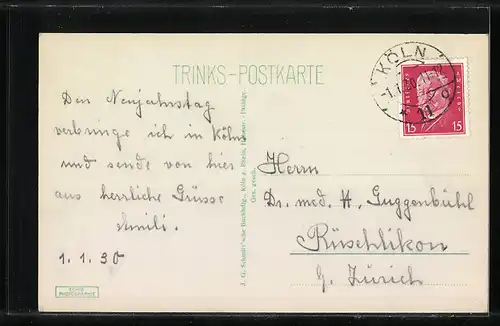 TRINKS-POSTKARTE
KÖLN
-1.1.30.11-12
15 15
Den Neujahrstag
verbringe ich in Köln
und sende von hier
aus herrliche Grüsse
Emili.
1.1.30
Herrn
Dr. med. H. Guggenbühl
Rüschlikon
b. Zürich
J. G. Schmitz'sche Buchhdlg., Köln a. Rhein,
Ges. gesch.
ECHTE
PHOTOGRAPHIE